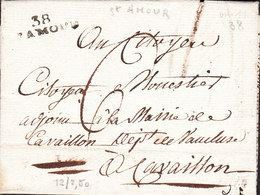 38
S AMOUR
St AMOUR
38
Au Citoyen
Citoyen Mouestier
adjoint à la Mairie de
Cavaillon Dept de Vaucluse
A Cavaillon
12/2,50